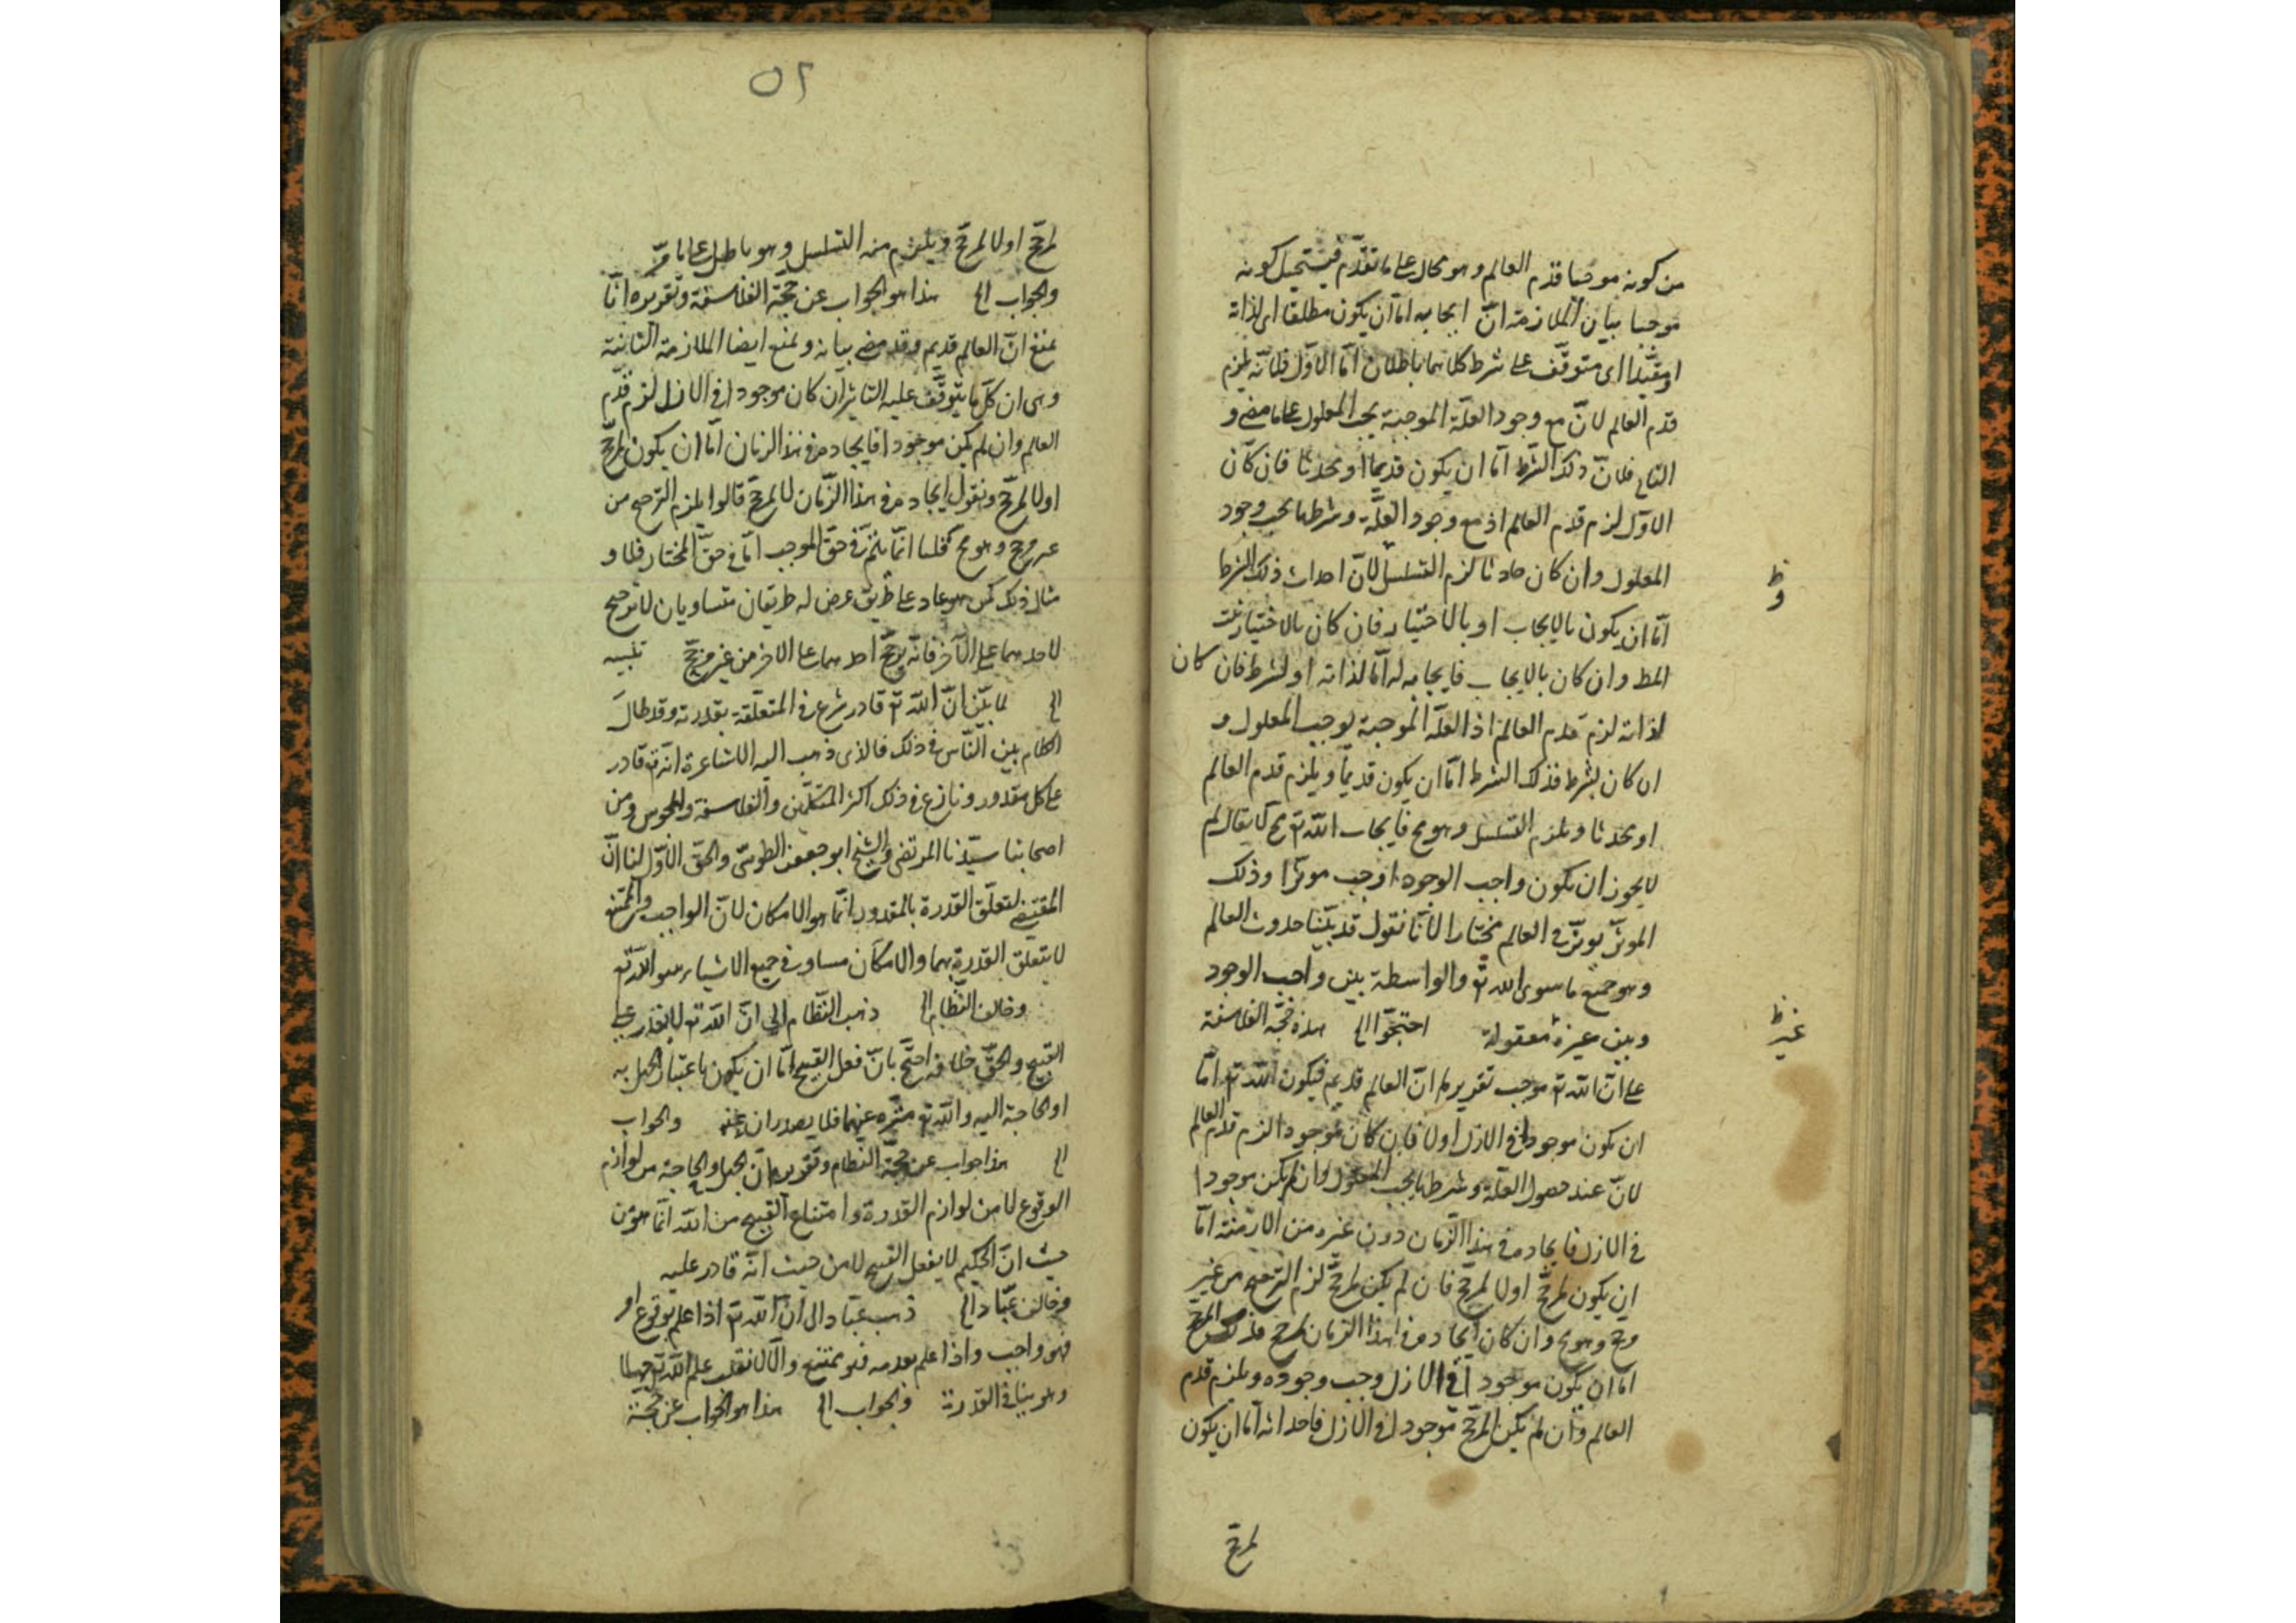 من كونه موجبا قدم العالم وهو محال على ما تقدّم فيستحيل كونه
موجبا بيان الملازمة انّ ايجابه امّا ان يكون مطلقا اى لذاته
او مقيّدا اى متوقّف على شرط كلاهما باطلان امّا الاوّل فلانّه يلزم
قدم العالم لانّ مع وجود العلّة الموجبة يجب المعلول على ما مضى و
الثانى فلانّ ذلك الشرط امّا ان يكون قديما او محدثا فان كان
الاوّل لزم قدم العالم اذ مع وجود العلّة وشرطها يجب وجود
المعلول وان كان حادثا لزم التسلسل لانّ احداث ذلك الشرط
ظ
و
امّا ان يكون بالايجاب او بالاختيار فان كان بالاختيار ثبت
المط وان كان بالايجاب فايجابه له امّا لذاته او لشرط فان كان
لذاته لزم قدم العالم اذ العلّة الموجبة يوجب المعلول و
ان كان بشرط فذلك الشرط امّا ان يكون قديما ويلزم قدم العالم
او محدثا ويلزم التسلسل وهو مح فايجاب اللّه تع مح لا يقال لم
لا يجوز ان يكون واجب الوجود اوجب موثرا وذلك
الموثّر يوثّر فى العالم مختارا لانّا نقول قد بيّنا حدوث العالم
وهو جميع ما سوى اللّه تع والواسطة بين واجب الوجود
وبين غيره معقولة احتجّوا الخ هذه حجّة الفلاسفة
غير ظ
على انّ اللّه تع موجب تقريرها انّ العالم قديم فيكون اللّه تع امّا
ان يكون موجودا فى الازل اولا فان كان موجودا لزم قدم العالم
لانّ عند حصول العلّة وشرطها يجب المعلول وان لم يكن موجودا
فى الازل فايجاده فى هذا الزّمان دون غيره من الازمنة امّا
ان يكون لمرجّح اولا لمرجّح فان لم يكن لمرجّح لزم الترجيح من غير
مرجح وهو مح وان كان ايجاده فى هذا الزمان لمرجح فذلك المرجّح
امّا ان يكون موجودا فى الازل وجب وجوده ويلزم قدم
العالم وان لم يكن المرجّح موجودا فى الازل فاحداثه امّا ان يكون
لمرجّح
٥٢
لمرجّح اولا لمرجّح ويلزم منه التسلسل وهو باطل على ما مرّ
والجواب الخ هذا هو الجواب عن حجّة الفلاسفة وتقريره انّا
نمنع انّ العالم قديم وقد مضى بيانه ونمنع ايضا الملازمة الثانية
وهى ان كلّ ما يتوقّف عليه التاثير ان كان موجودا فى الازل لزم قدم
العالم وان لم يكن موجودا فايجاده فى هذا الزمان امّا ان يكون لمرجّح
اولا لمرجّح ونقول ايجاده فى هذا الزّمان لا لمرجّح قالوا يلزم الترجيح من
غير مرجح وهو مح قلنا انّما يلزم فى حقّ الموجب امّا فى حقّ المختار فلا و
مثال ذلك كمن هو عاد على طريق عرض له طريقان متساويان لا ترجيح
لاحدهما على الآخر فانّه يرجّح احدهما على الاخر من غير مرجّح تنبيه
الخ لما بيّن انّ اللّه تع قادر شرع فى المتعلّقة بقدرته وقد طال
الكلام بين النّاس فى ذلك فالذى ذهب اليه الاشاعرة انّه تع قادر
على كل مقدور ونازع فى ذلك اكثر المتكلّمين والفلاسفة والمجوس ومن
اصحابنا سيّدنا المرتضى والشيخ ابو جعفر الطوسىّ والحقّ الاوّل لنا انّ
المقتضى لتعلّق القدرة بالمقدور انّما هو الامكان لانّ الواجب والممتنع
لا يتعلّق القدرة بهما والامكان مساو فى جميع الاشياء سوى اللّه تع
وخالف النّظّام الخ ذهب النّظّام الى انّ اللّه تع لا يقدر على
القبيح والحقّ خلافه احتجّ بانّ فعل القبيح امّا ان يكون باعتبار الجهل به
او الحاجة اليه واللّه تع منزّه عنهما فلا يصدران عنه والجواب
الخ هذا جواب عن حجّة النظّام وتقريره انّ الجهل والحاجة من لوازم
الوقوع لا من لوازم القدرة وامتناع القبيح من اللّه انّما هو من
حيث انّ الحكيم لا يفعل القبيح لا من حيث انّه قادر عليه
وخالف عبّاد الخ ذهب عبّاد الى انّ اللّه تع اذا علم بوقوع امر
فهو واجب واذا علم بعدمه فهو ممتنع والّا لانقلب علم اللّه تع جهلا
وهو ينافى القدرة والجواب الخ هذا هو الجواب عن حجّة